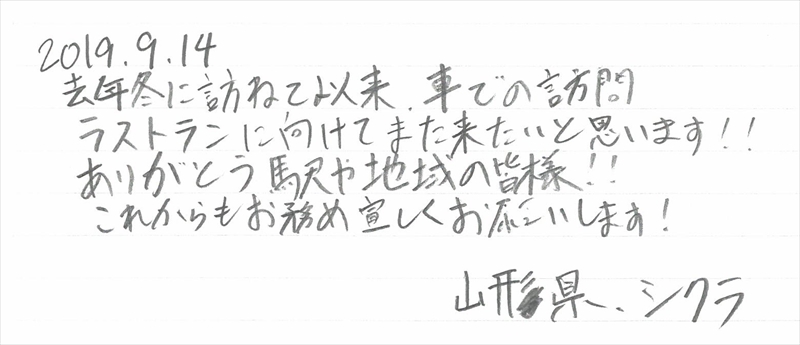 2019.9.14
去年冬に訪ねて以来、車での訪問
ラストランに向けてまた来たいと思います!!
ありがとう駅や地域の皆様!!
これからもお務め宜しくお願いします!
山形県、シクラ